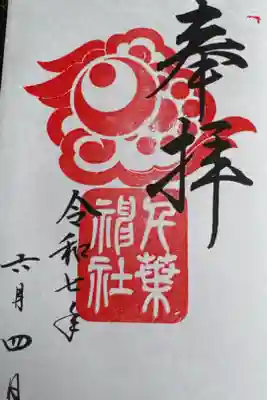 奉拝
千葉
神社
令和七年
六月四日